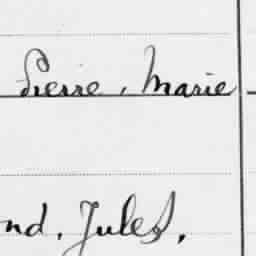 Pierre, Marie
nd, Jules,